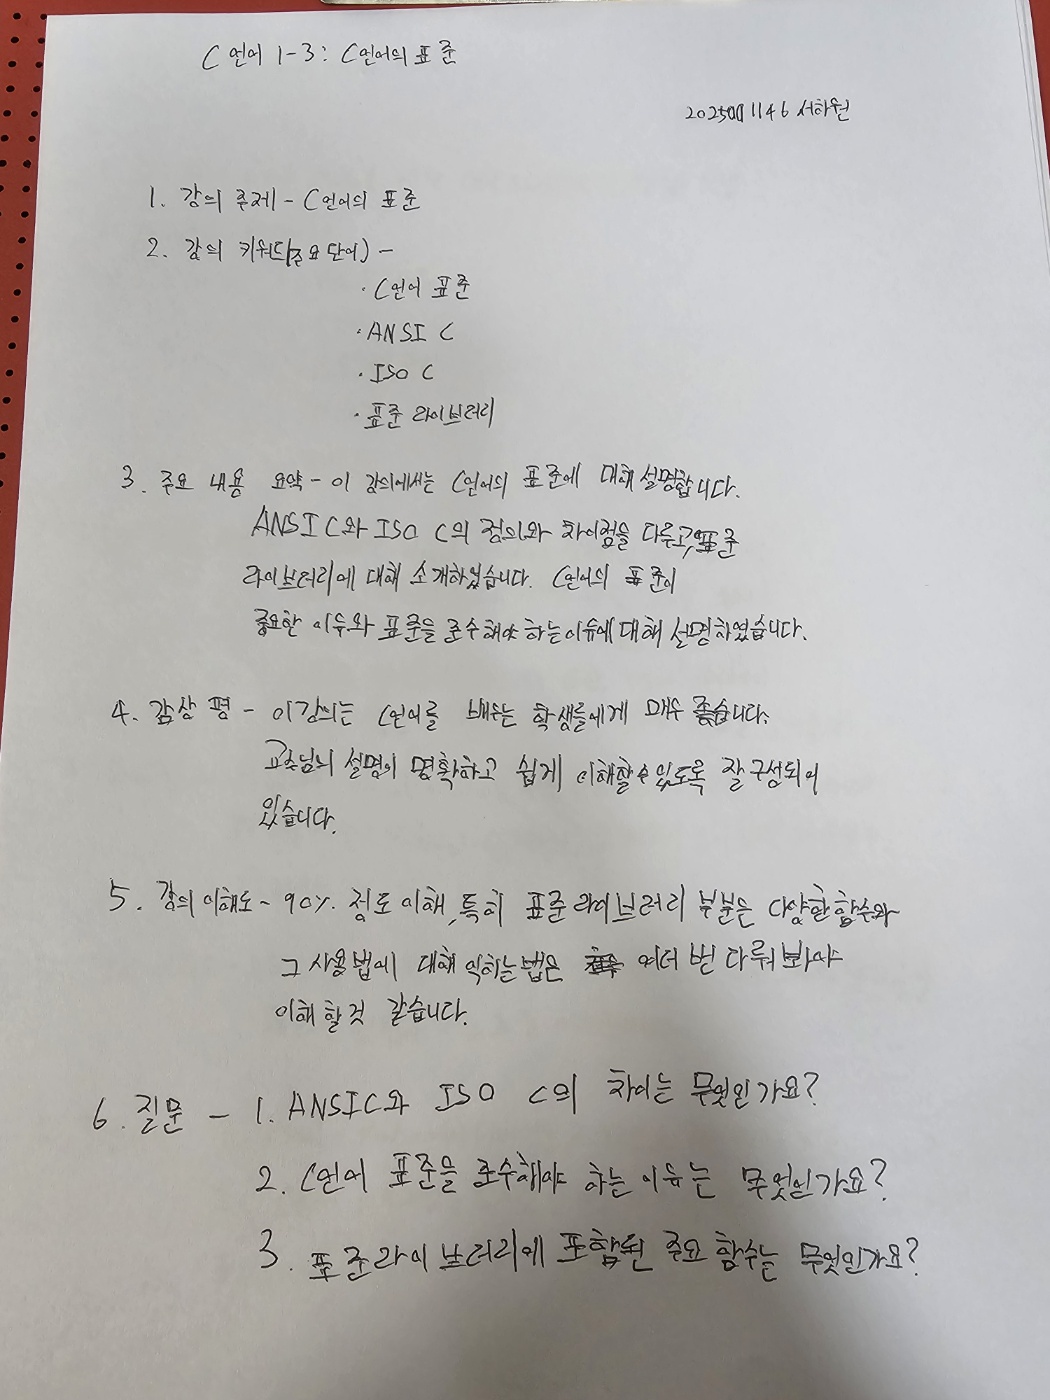 C언어 1-3: C언어의 표준
서하원
1. 강의 주제 - C언어의 표준
2. 강의 키워드(주요 단어) -
· C언어 표준
· ANSI C
· ISO C
· 표준 라이브러리
3. 주요 내용 요약 - 이 강의에서는 C언어의 표준에 대해 설명합니다.
ANSI C와 ISO C의 정의와 차이점을 다루고, 표준
라이브러리에 대해 소개하였습니다. C언어의 표준이
중요한 이유와 표준을 준수해야 하는 이유에 대해 설명하였습니다.
4. 감상 평 - 이 강의는 C언어를 배우는 학생들에게 매우 좋습니다.
교수님의 설명이 명확하고 쉽게 이해할 수 있도록 잘 구성되어
있습니다.
5. 강의 이해도 - 90% 정도 이해, 특히 표준 라이브러리 부분은 다양한 함수와
그 사용법에 대해 익히는 법은 여러 번 다뤄 봐야
이해 할 것 같습니다.
6. 질문 - 1. ANSI C와 ISO C의 차이는 무엇인가요?
2. C언어 표준을 준수해야 하는 이유는 무엇인가요?
3. 표준 라이브러리에 포함된 주요 함수는 무엇인가요?